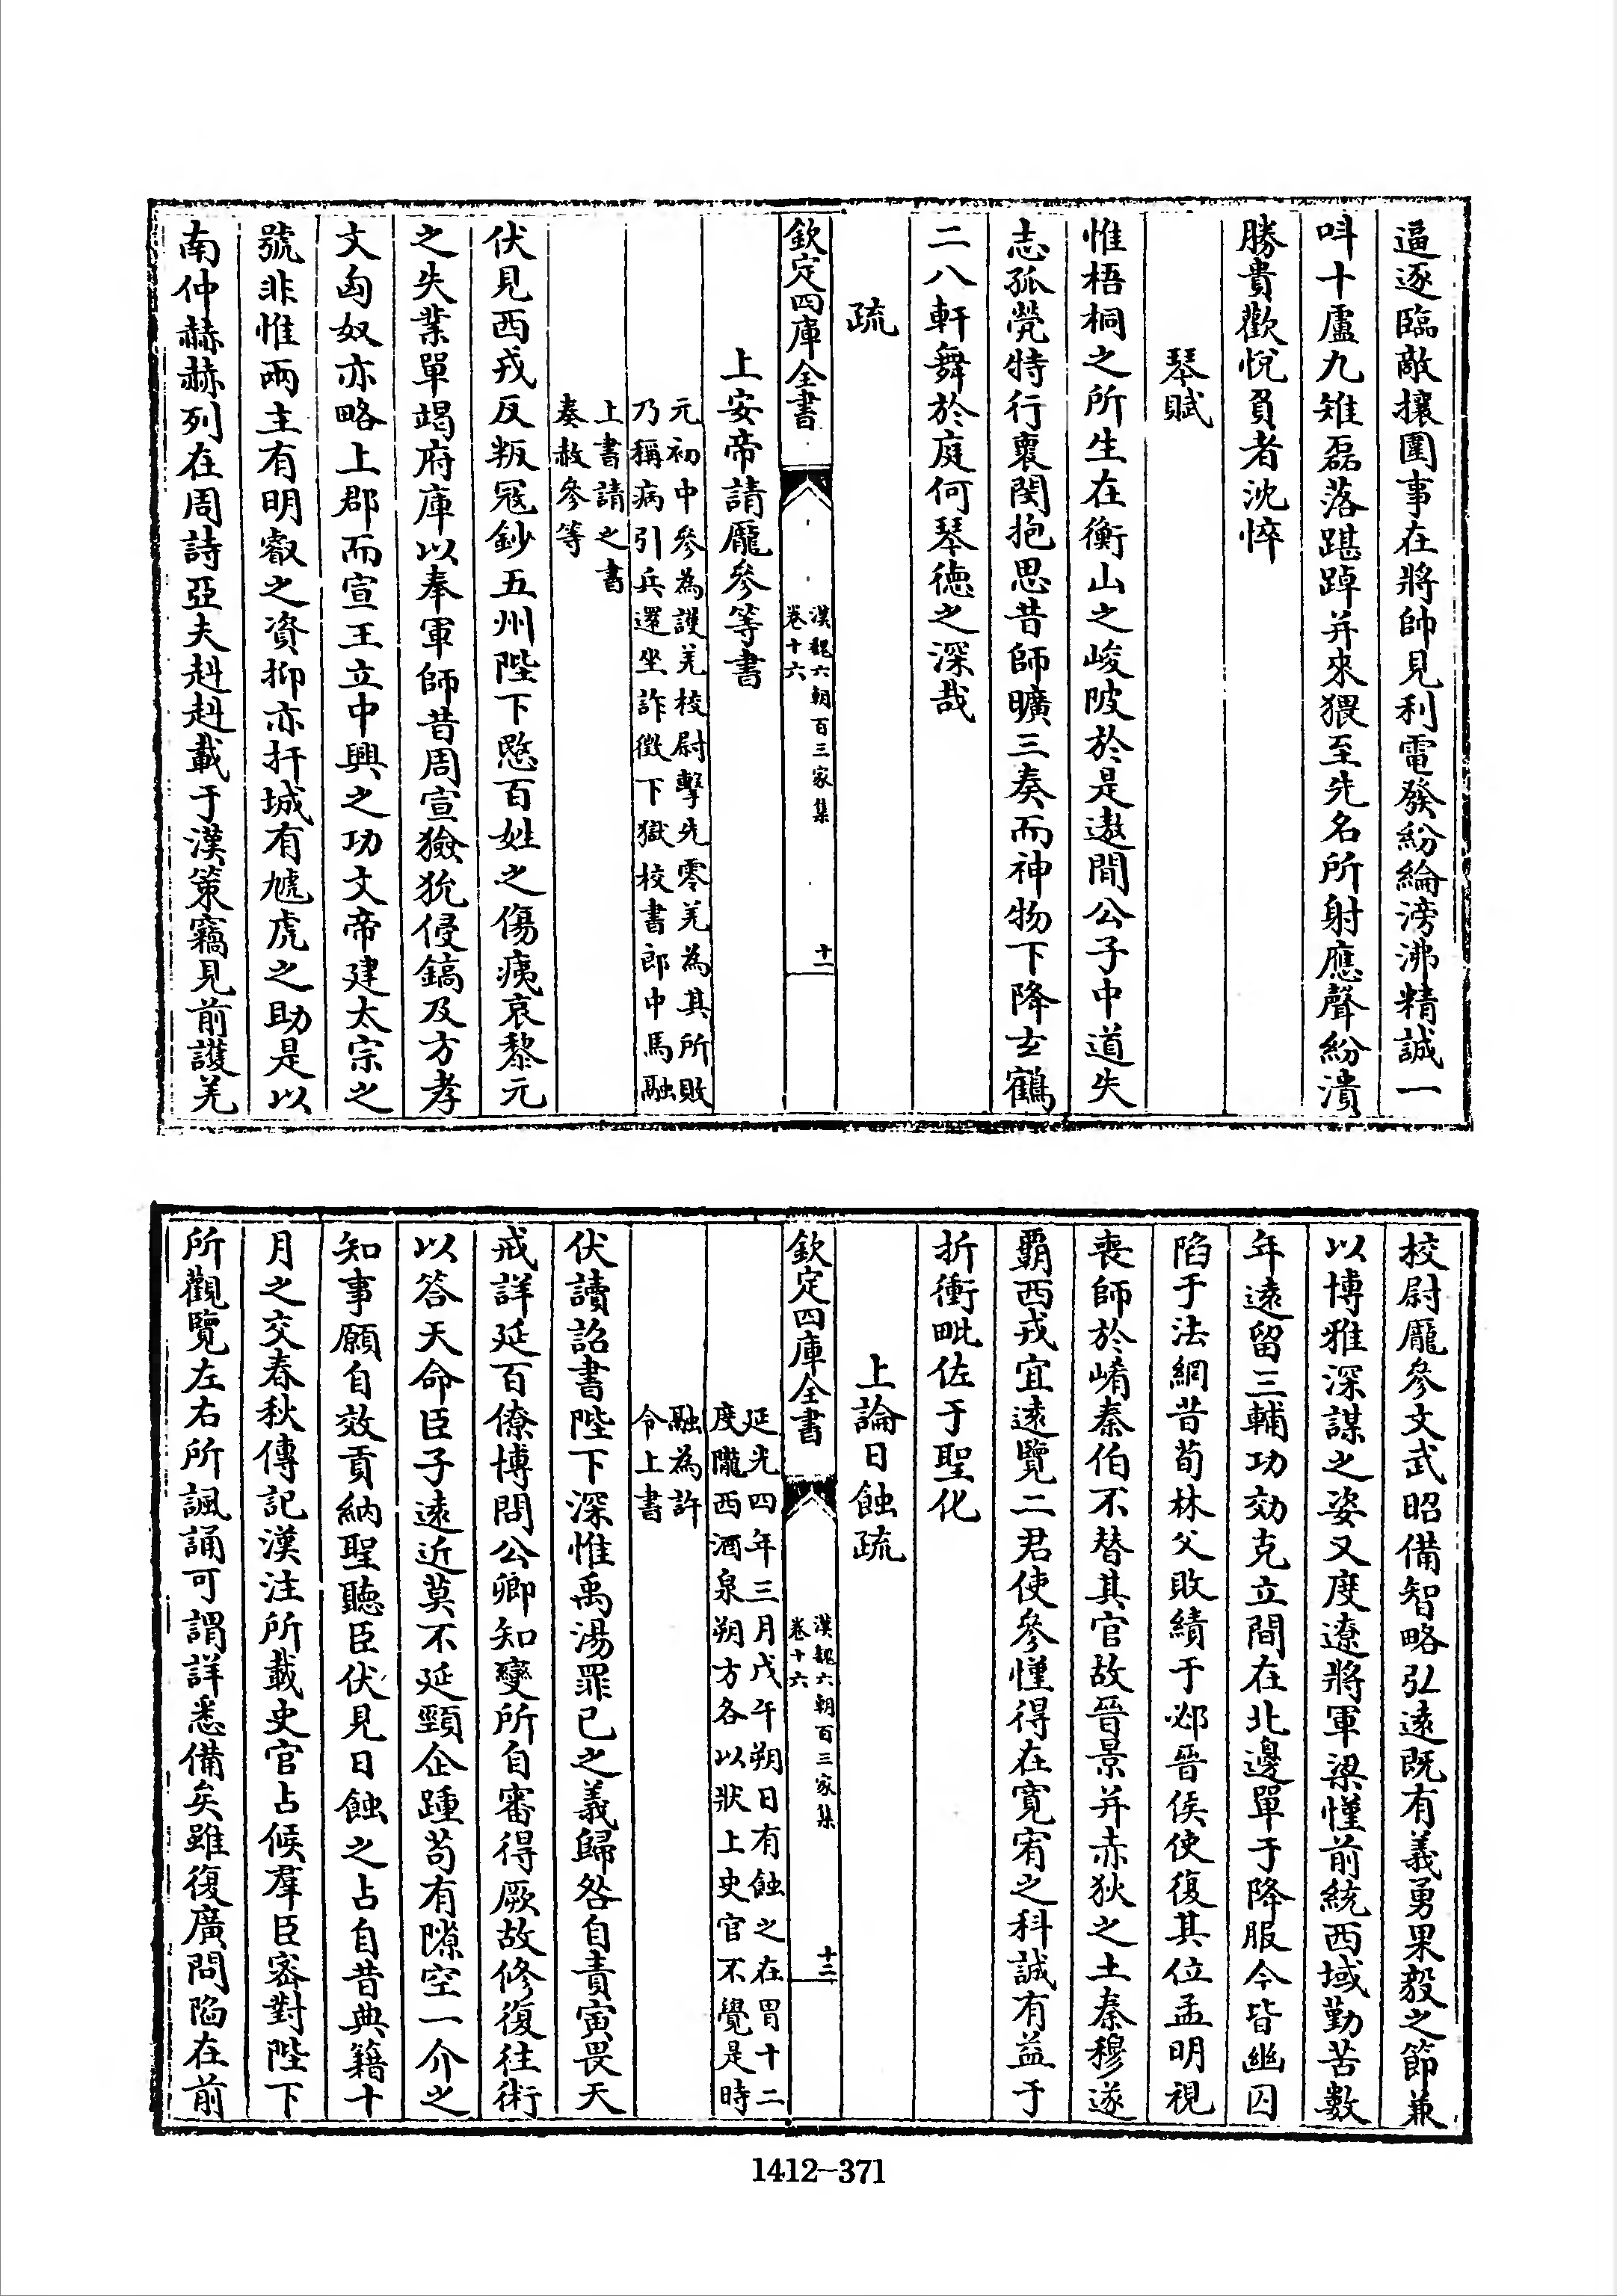 逼逐臨敵攘圍事在將帥見利電發紛綸滂沸精誠一
呌十盧九雉磊落踸踔并來猥至先名所射應聲紛潰
勝貴歡悅負者沈悴
琴賦
惟梧桐之所生在衡山之峻陂於是遨間公子中道失
志孤煢特行裹閔抱思昔師曠三奏而神物下降玄鶴
二八軒舞於庭何琴德之深哉
疏
欽定四庫全書
漢魏六朝百三家集
卷十六
十二
上安帝請龎參等書
元初中參為護羌校尉擊先零羌為其所敗
乃稱病引兵還坐詐徵下獄校書郎中馬融
上書請之書
奏赦參等
伏見西戎反叛宼鈔五州陛下愍百姓之傷痍哀黎元
之失業單竭府庫以奉軍師昔周宣獫狁侵鎬及方孝
文匈奴亦略上郡而宣王立中興之功文帝建太宗之
號非惟兩主有明叡之資抑亦扞城有虓虎之助是以
南仲赫赫列在周詩亞夫赳赳載于漢策竊見前護羌
校尉龎參文武昭備智略弘遠既有義勇果毅之節兼
以博雅深謀之姿又度遼將軍梁慬前統西域勤苦數
年遠留三輔功効克立間在北邊單于降服今皆幽囚
陷于法網昔荀林父敗績于邲晉侯使復其位孟明視
喪師於崤秦伯不替其官故晉景并赤狄之土秦穆遂
覇西戎宜遠覽二君使參慬得在寛宥之科誠有益于
折衝毗佐于聖化
上論日蝕疏
欽定四庫全書
漢魏六朝百三家集
卷十六
十三
延光四年三月戊午朔日有蝕之在胃十二
度隴西酒泉朔方各以狀上史官不覺是時
融為許
令上書
伏讀詔書陛下深惟禹湯罪已之義歸咎自責寅畏天
戒詳延百僚博問公卿知變所自審得厥故修復往術
以答天命臣子遠近莫不延頸企踵苟有隙空一介之
知事願自效貢納聖聽臣伏見日蝕之占自昔典籍十
月之交春秋傳記漢注所載史官占候羣臣密對陛下
所觀覽左右所諷誦可謂詳悉備矣雖復廣問陷在前
1412-371